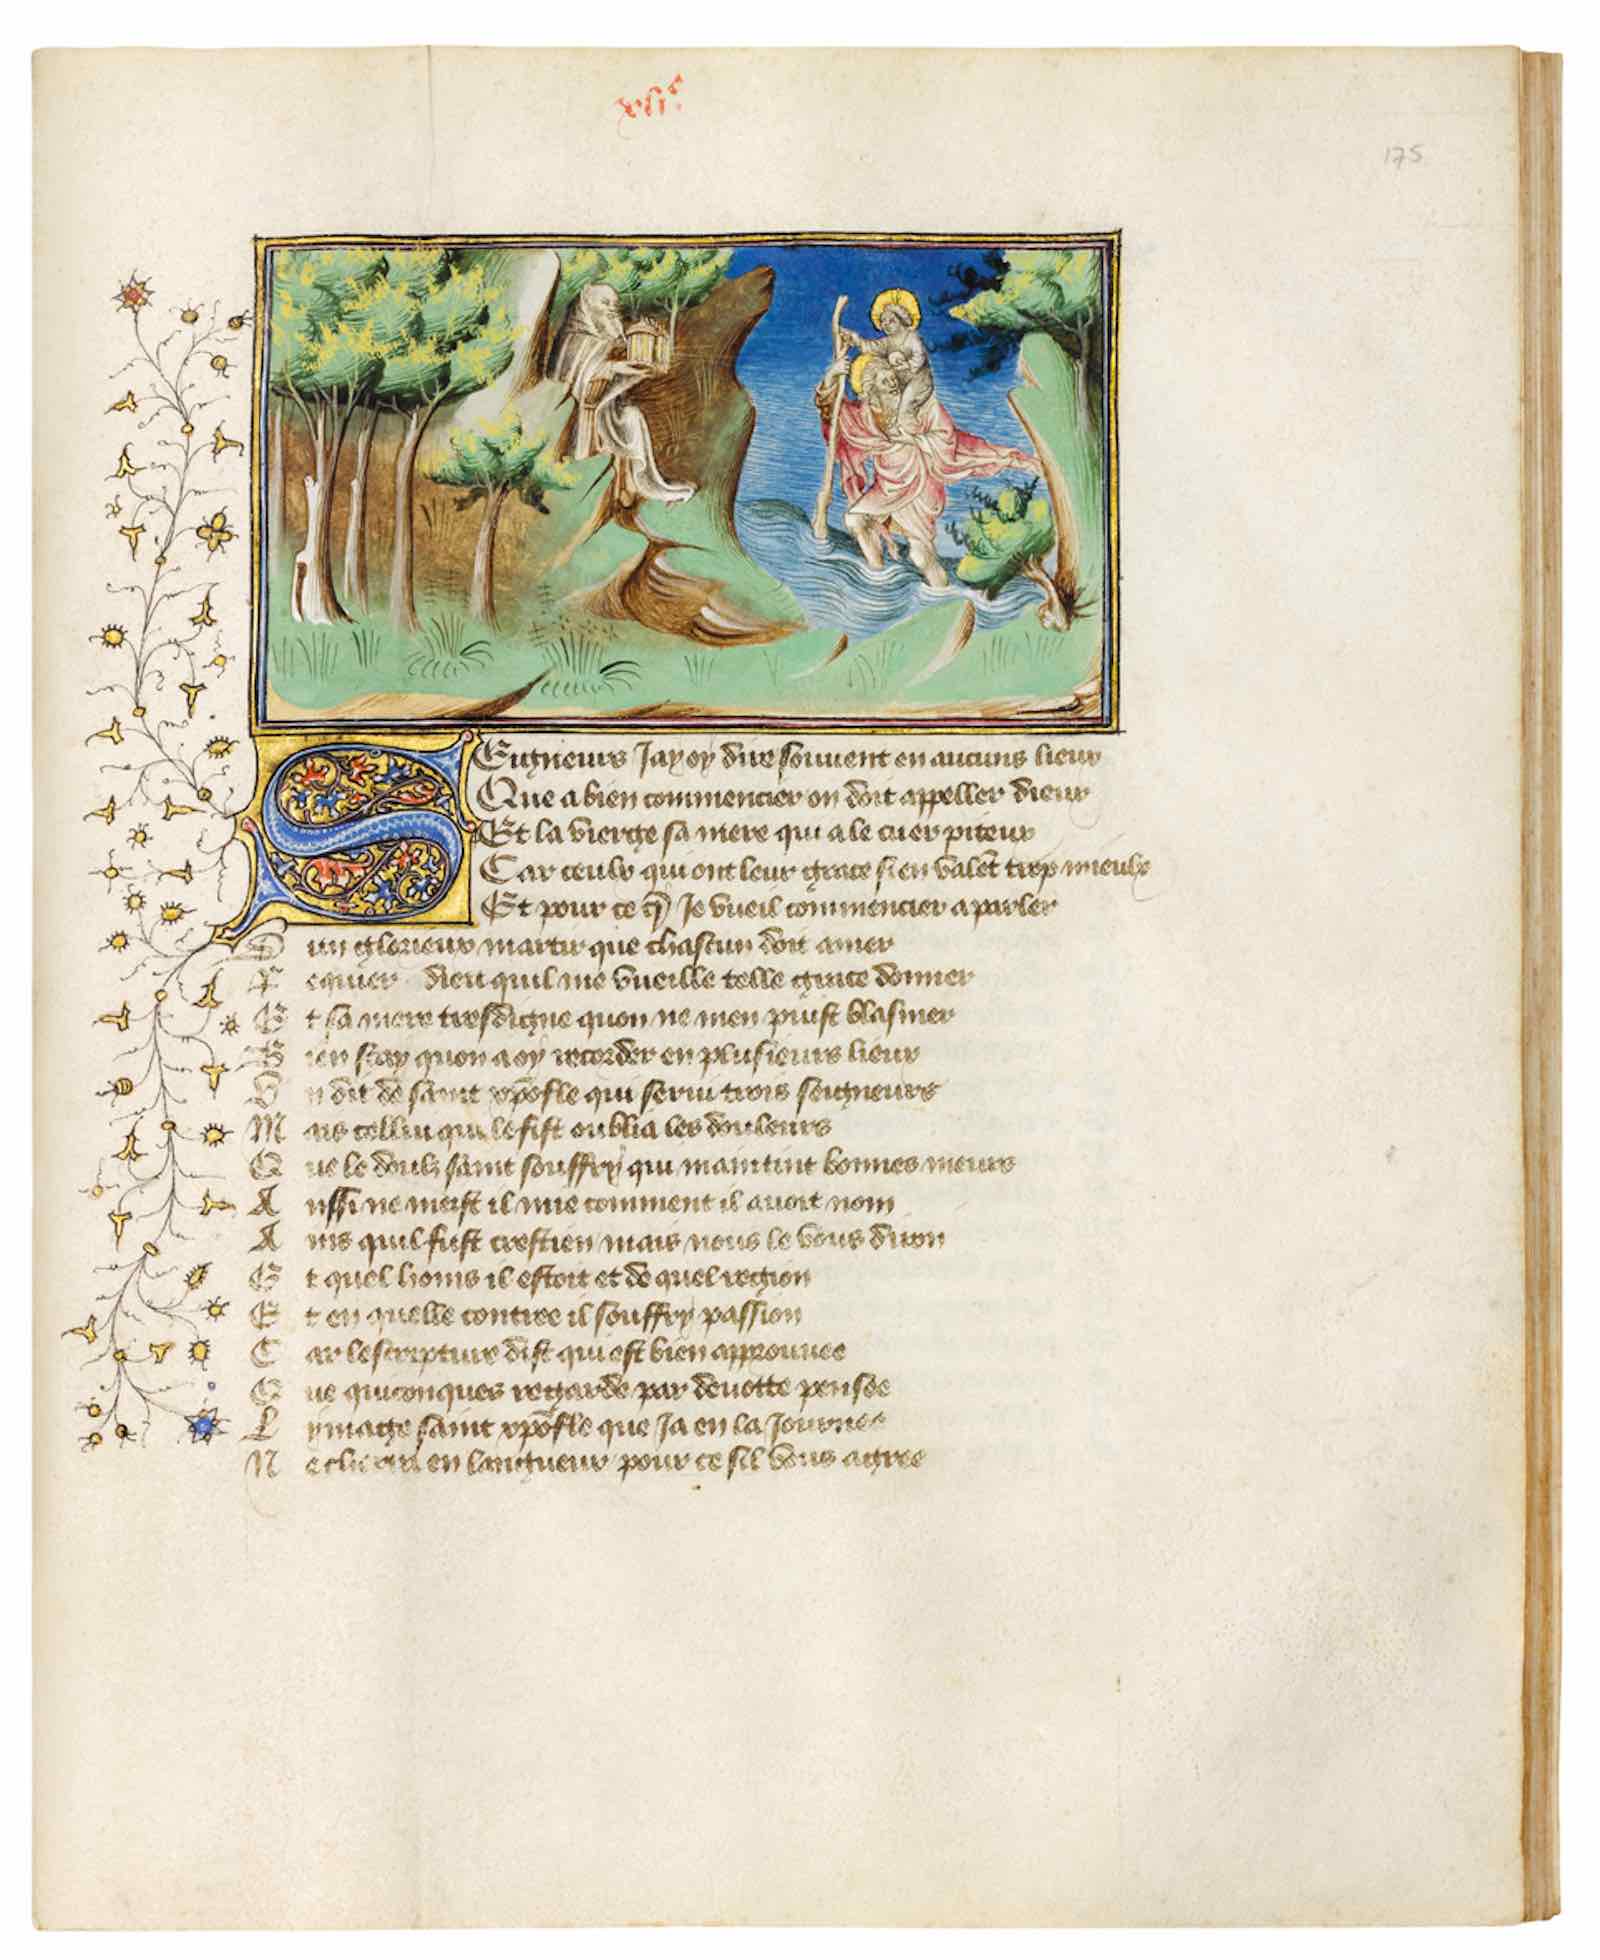 xlie
175
SEigneurs Jay oy dire souuent en aucuns lieux
Que a bien commencier on doit appeller dieux
Et la vierge sa mere qui a le cuer piteux
Car ceulx qui ont leur grace si en valet trop mieulx
Et pour ce q̃ Je vueil commencier a parler
D un glorieux martir que chascun doit amer
R equier dieu quil me vueille telle grace donner
E t sa mere tresdigne quon ne men puist blasmer
B ien scay quon a oy recorder en plusieurs lieux
U n dit de saint xp̃ofle qui serui trois seigneurs
M ais cellui qui le fist oublia les douleurs
Q ue le doulz saint souffry qui maintint bonnes meurs
A ussi ne meist il mie comment il auoit nom
A ins quil fust crestien mais nous le vous diron
E t quel homs il estoit et de quel region
E t en quelle contree il souffry passion
C ar lescripture dist qui est bien approuuee
Q ue quiconques regarde par deuotte pensee
L ymage saint xp̃ofle que Ja en la Journee
N e en langueur pour ce sil vous agree